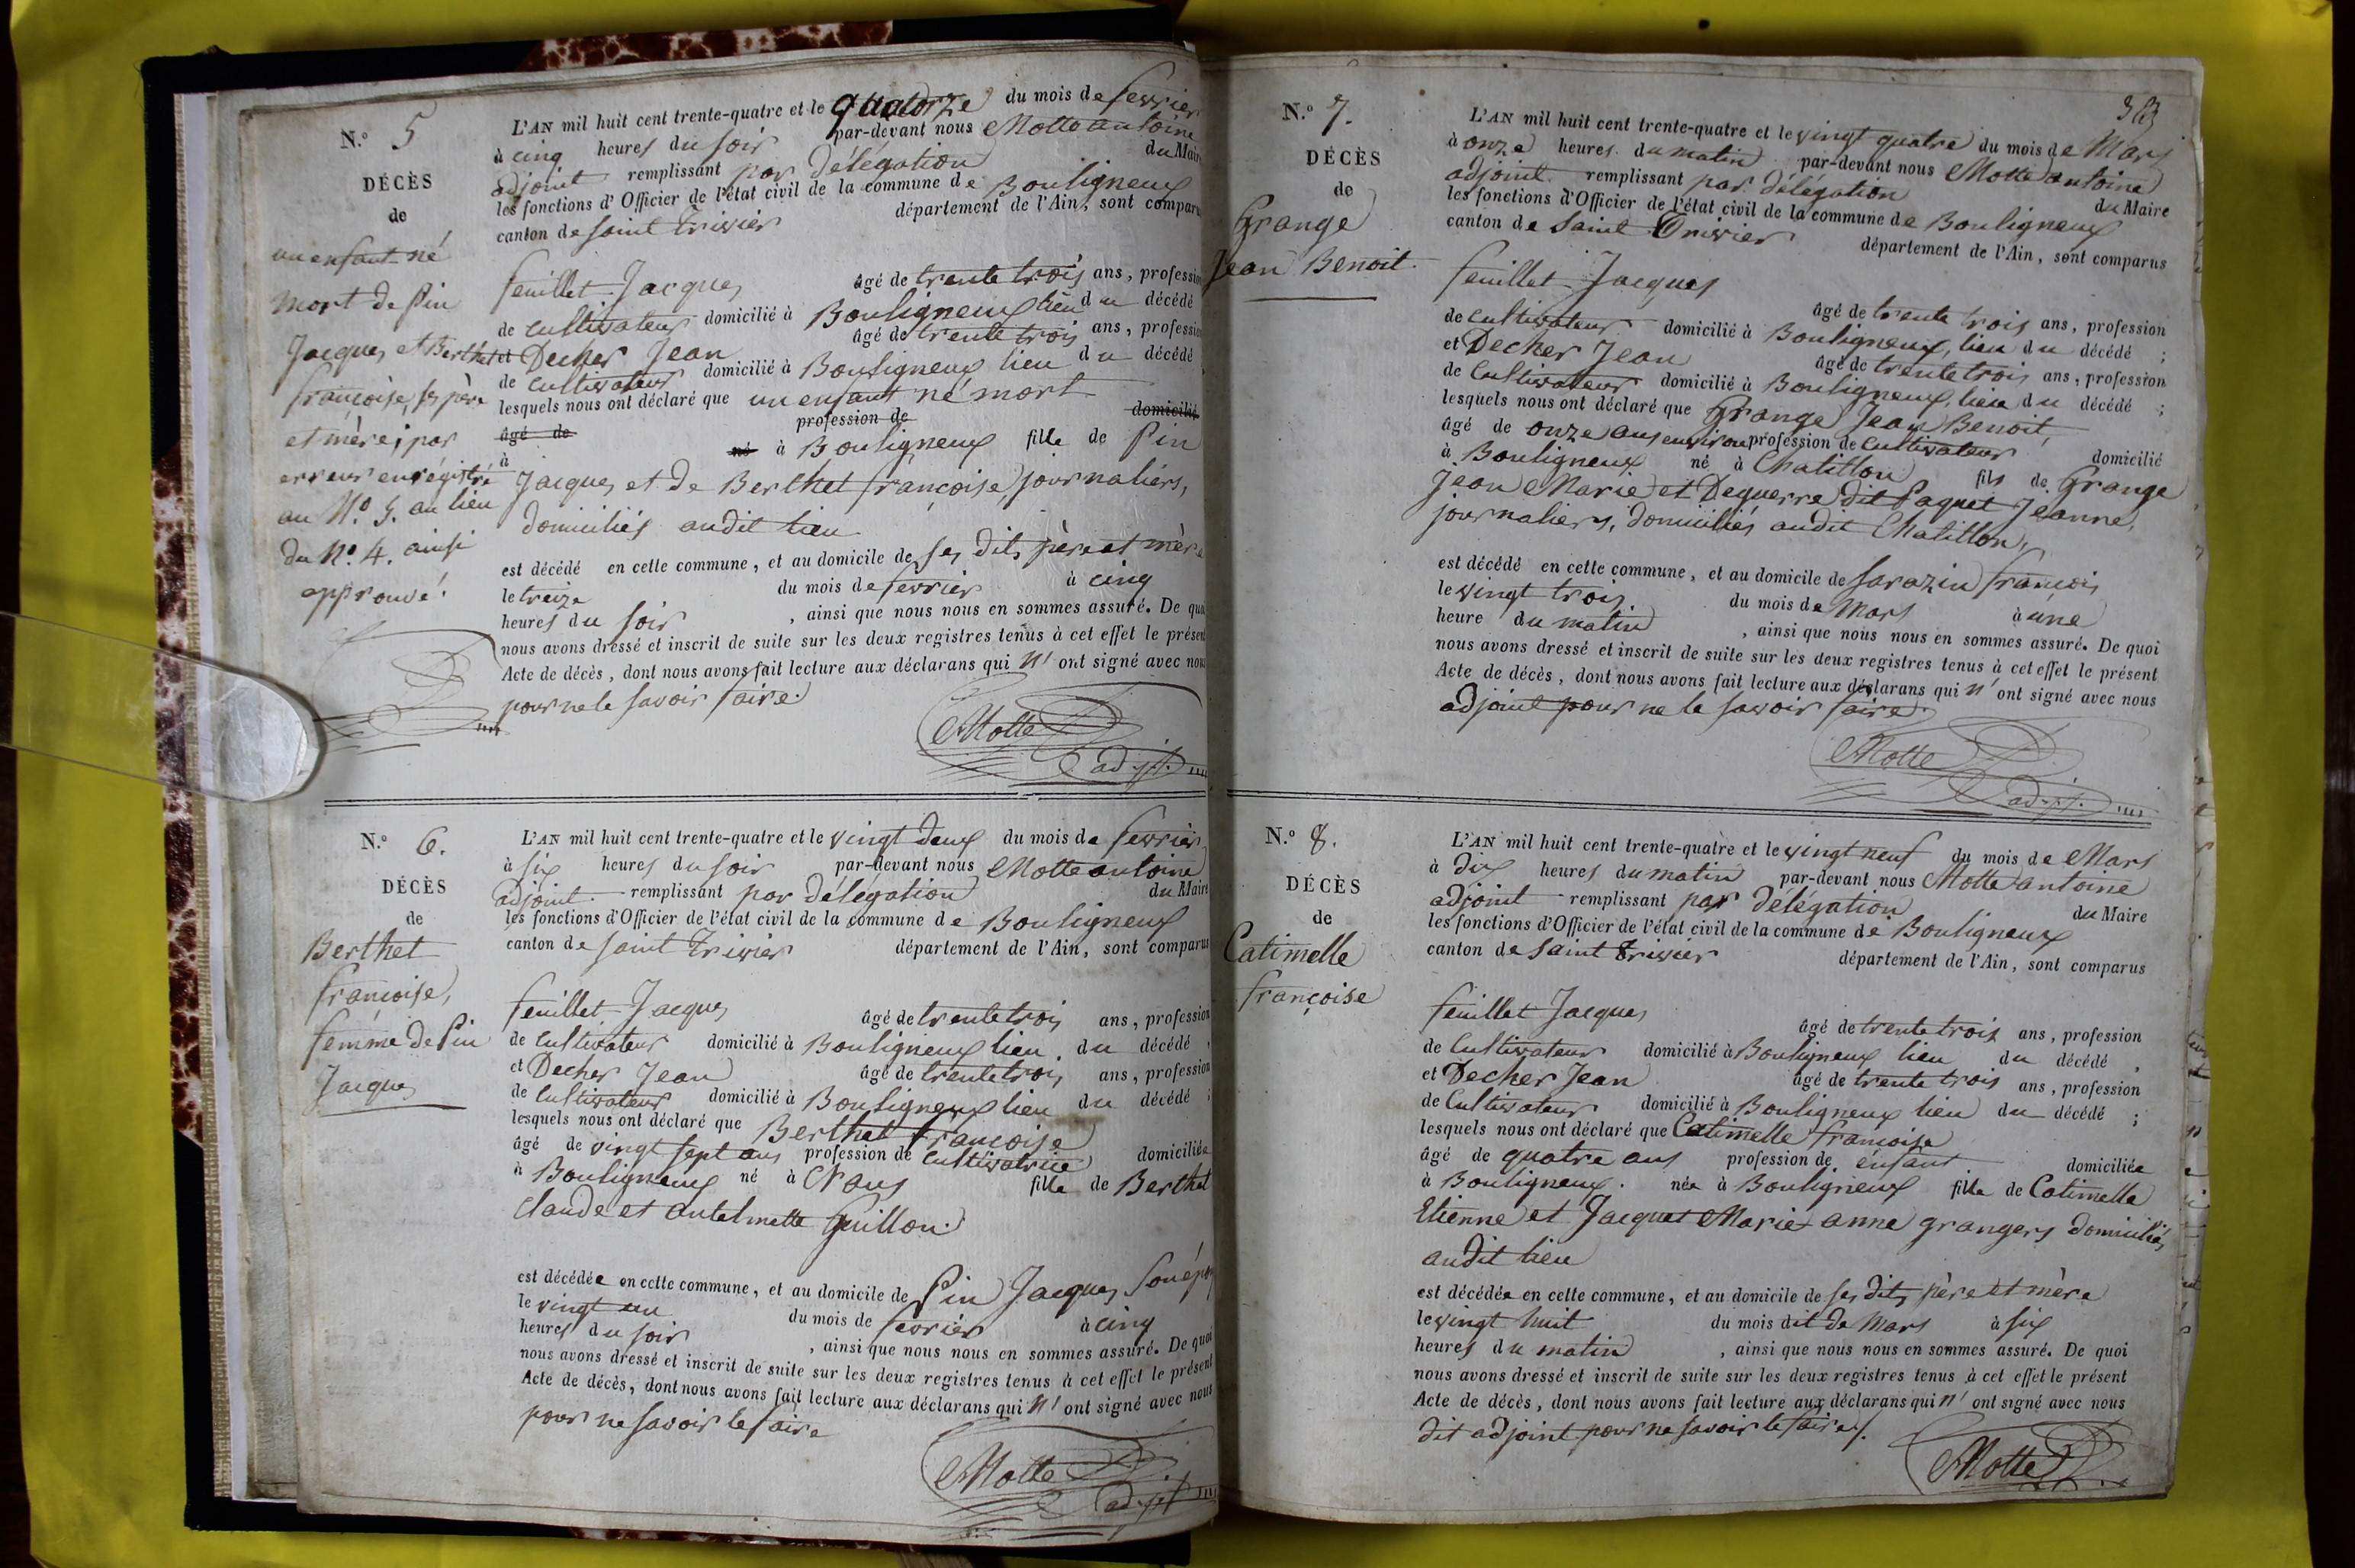 N.° 5
DÉCÈS
de
un enfant né
mort de Pin
Jacques et Berthet
françoise, ses père
et mère; par
erreur enrégistré
au N.° 5. au lieu
du N.° 4. ainsi
approuvé.
L'AN mil huit cent trente-quatre et le quatorze du mois de fevrier
à cinq heures du soir par-devant nous Motte antoine
adjoint remplissant par délégation du Maire
les fonctions d'Officier de l'état civil de la commune de Bouligneux
canton de saint trivier département de l'Ain, sont comparu
feuillet Jacques âgé de trente trois ans, profession
de cultivateur domicilié à Bouligneux lieu du décédé
et Decher Jean âgé de trente trois ans, profession
de cultivateur domicilié à Bouligneux lieu du décédé
lesquels nous ont déclaré que un enfant né mort
âgé de profession de domicilié
à né à Bouligneux fille de Pin
Jacques et de Berthet françoise, journaliers,
domiciliés audit lieu
est décédé en cette commune, et au domicile de ses dits père et mère
le treize du mois de fevrier à cinq
heures du soir , ainsi que nous nous en sommes assuré. De quoi
nous avons dressé et inscrit de suite sur les deux registres tenus à cet effet le présent
Acte de décès, dont nous avons fait lecture aux déclarans qui n' ont signé avec nous
pour ne le savoir faire.
Motte
adj.t
N.° 6.
DÉCÈS
de
Berthet
françoise,
femme de Pin
Jacques
L'AN mil huit cent trente-quatre et le vingt deux du mois de fevrier
à six heures du soir par-devant nous Motte antoine
adjoint remplissant par délégation du Maire
les fonctions d'Officier de l'état civil de la commune de Bouligneux
canton de saint trivier département de l'Ain, sont comparus
feuillet Jacques âgé de trente trois ans, profession
de cultivateur domicilié à Bouligneux lieu du décédé
et Decher Jean âgé de trente trois ans, profession
de cultivateur domicilié à Bouligneux lieu du décédé ;
lesquels nous ont déclaré que Berthet françoise
âgé de vingt sept ans profession de cultivatrice domiciliée
à Bouligneux né à Crans fille de Berthet
Claude et antelmette Guillon.
est décédée en cette commune, et au domicile de Pin Jacques son épou
le vingt un du mois de fevrier à cinq
heures du soir , ainsi que nous nous en sommes assuré. De quoi
nous avons dressé et inscrit de suite sur les deux registres tenus à cet effet le présent
Acte de décès, dont nous avons fait lecture aux déclarans qui n' ont signé avec nous
pour ne savoir le faire
Motte
adj.t
N.° 7.
DÉCÈS
de
Grange
Jean Benoit.
L'AN mil huit cent trente-quatre et le vingt quatre du mois de Mars
à onze heures du matin par-devant nous Motte antoine
adjoint remplissant par délégation du Maire
les fonctions d'Officier de l'état civil de la commune de Bouligneux
canton de saint Trivier département de l'Ain, sont comparus
feuillet Jacques âgé de trente trois ans, profession
de cultivateur domicilié à Bouligneux, lieu du décédé ;
et Decher Jean âgé de trente trois ans, profession
de cultivateur domicilié à Bouligneux, lieu du décédé ;
lesquels nous ont déclaré que Grange Jean Benoit,
âgé de onze ans environ profession de cultivateur domicilié
à Bouligneux né à Chatillon fils de Grange
Jean Marie et Dequerre dit Paquet Jeanne,
journaliers, domiciliés audit Chatillon,
est décédé en cette commune, et au domicile de Sarazin françois
le vingt trois du mois de Mars à une
heure du matin , ainsi que nous nous en sommes assuré. De quoi
nous avons dressé et inscrit de suite sur les deux registres tenus à cet effet le présent
Acte de décès, dont nous avons fait lecture aux déclarans qui n' ont signé avec nous
adjoint pour ne le savoir faire.
Motte
adj.t
N.° 8.
DÉCÈS
de
Catimelle
françoise
L'AN mil huit cent trente-quatre et le vingt neuf du mois de Mars
à dix heures du matin par-devant nous Motte antoine
adjoint remplissant par délégation du Maire
les fonctions d'Officier de l'état civil de la commune de Bouligneux
canton de saint trivier département de l'Ain, sont comparus
feuillet Jacques âgé de trente trois ans, profession
de cultivateur domicilié à Bouligneux lieu du décédé ,
et Decher Jean âgé de trente trois ans, profession
de Cultivateur domicilié à Bouligneux lieu du décédé ;
lesquels nous ont déclaré que Catimelle françoise
âgé de quatre ans profession de enfant domiciliée
à Bouligneux. née à Bouligneux fille de Catimelle
Etienne et Jacquet Marie anne grangers domiciliés
audit lieu
est décédée en cette commune, et au domicile de ses dits père et mère
le vingt huit du mois dit de Mars à six
heures du matin , ainsi que nous nous en sommes assuré. De quoi
nous avons dressé et inscrit de suite sur les deux registres tenus à cet effet le présent
Acte de décès, dont nous avons fait lecture aux déclarans qui n' ont signé avec nous
dit adjoint pour ne savoir le faire.
Motte